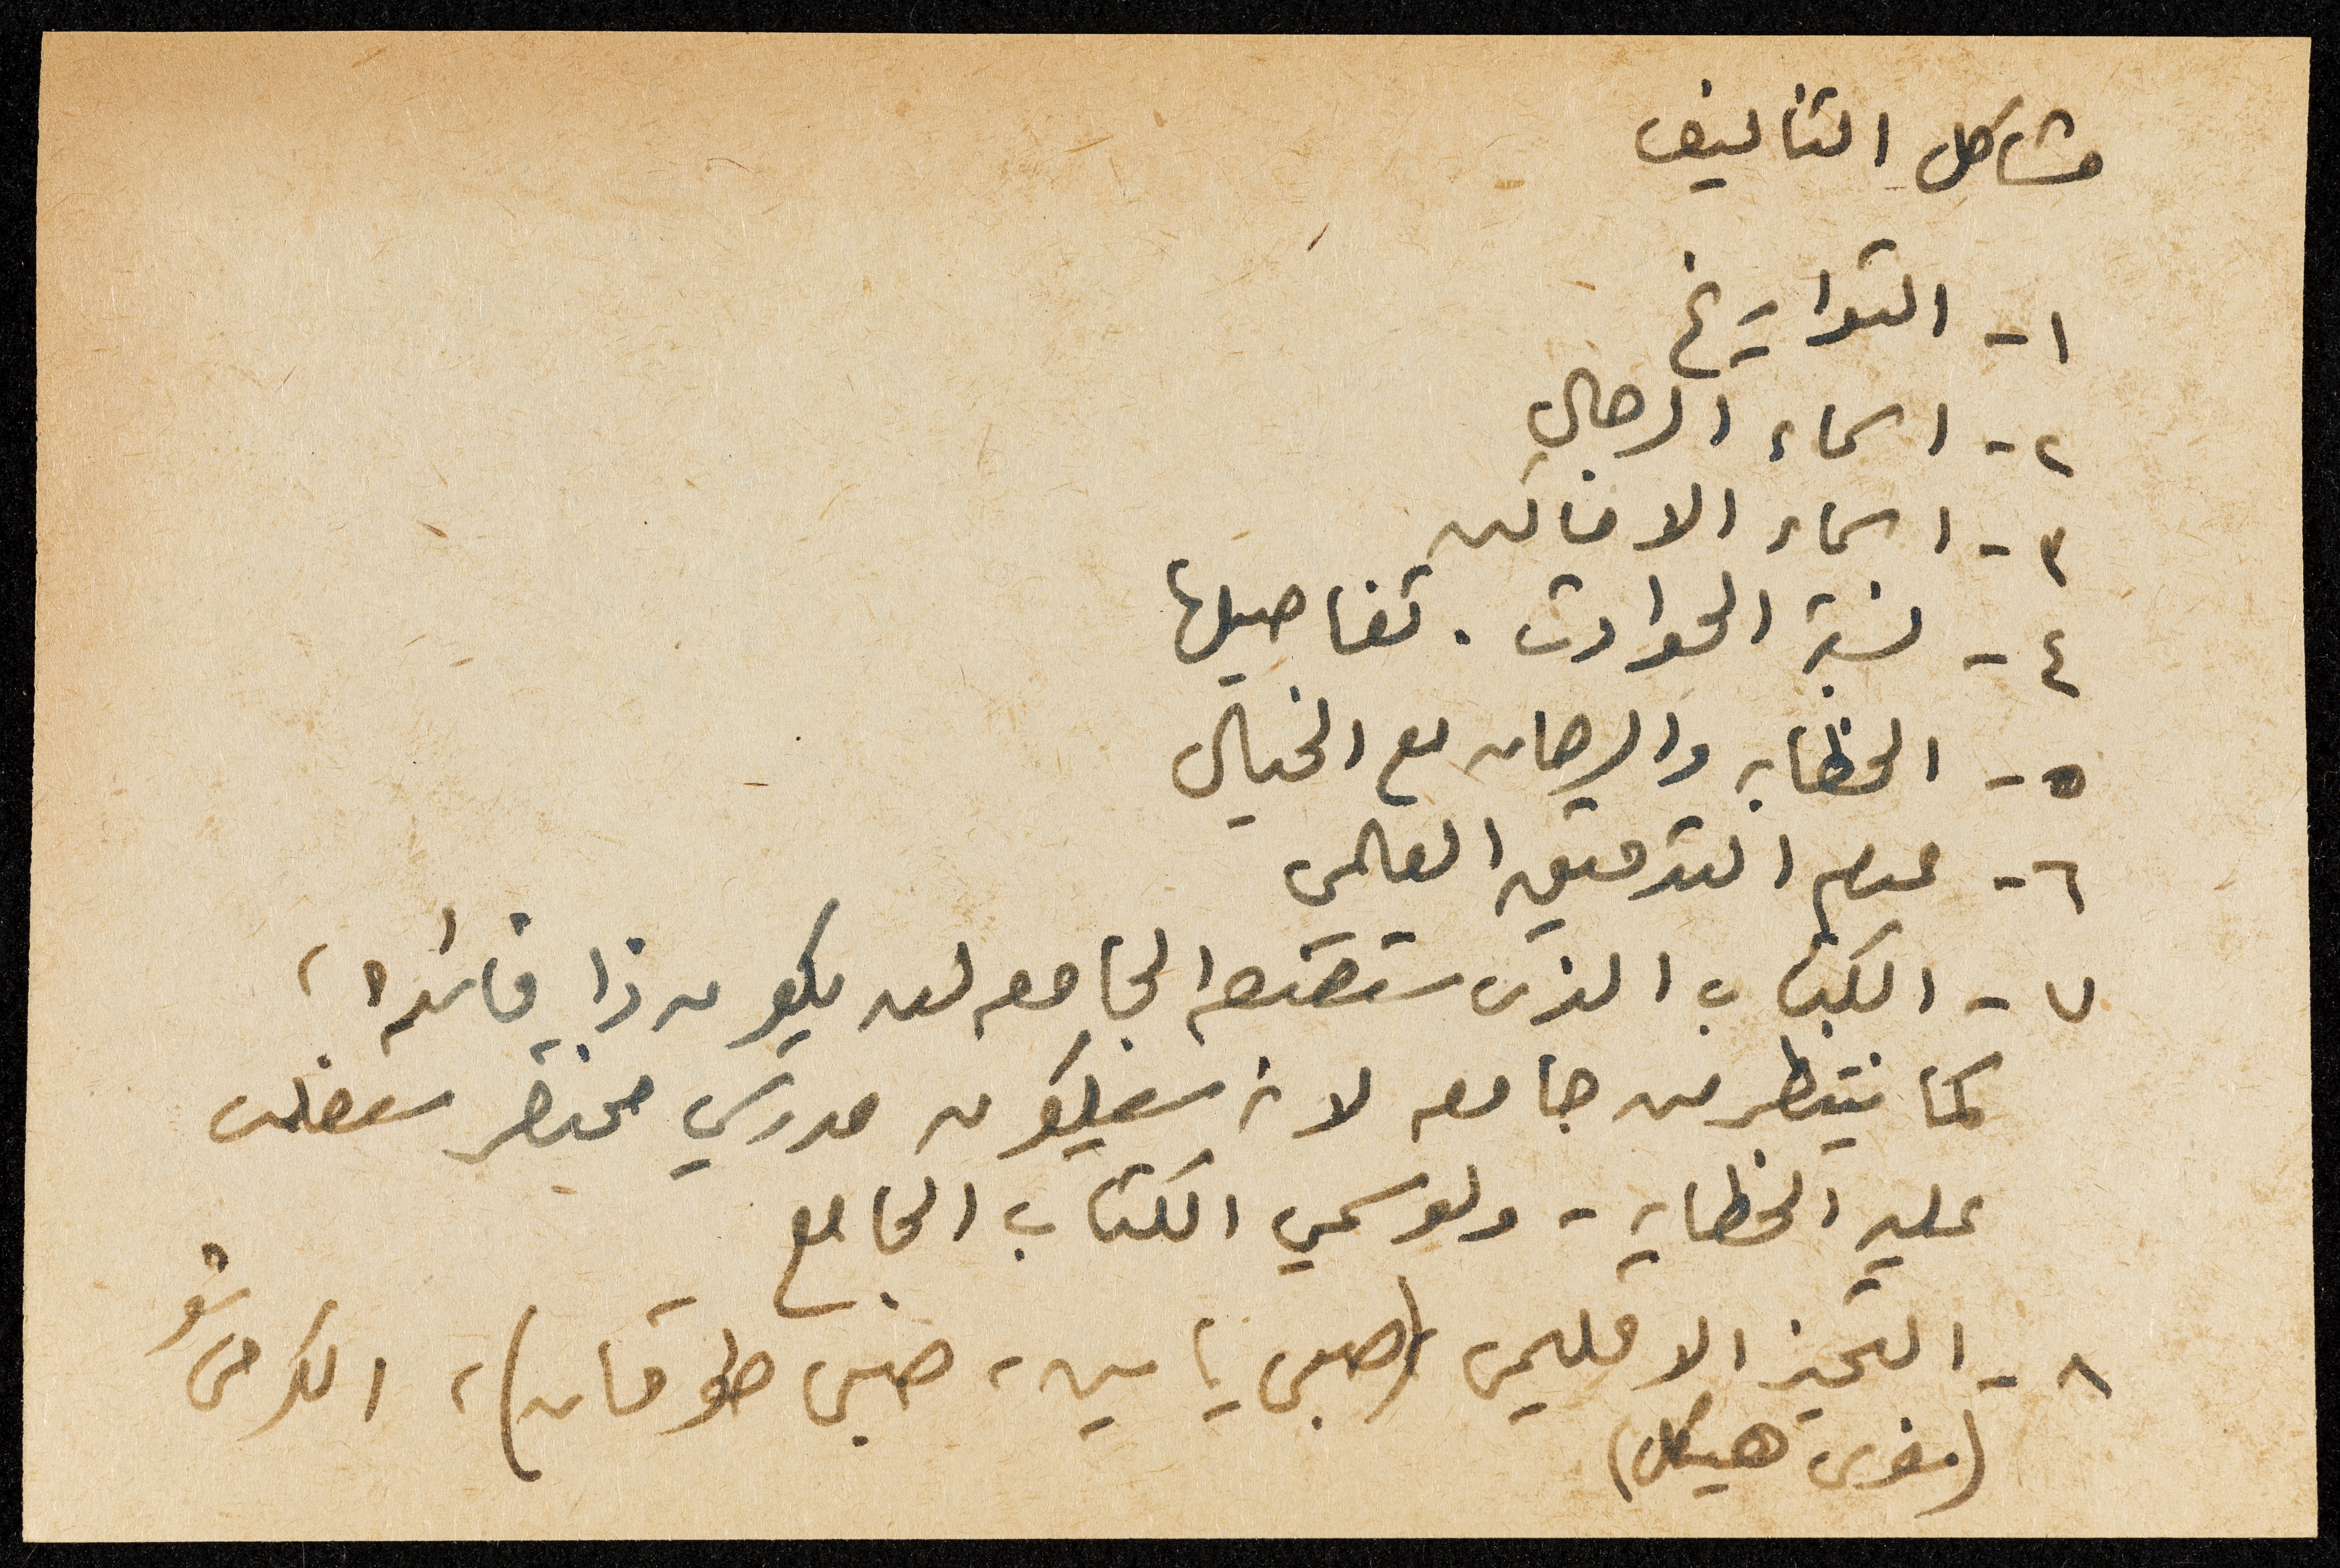 مشاكل التأليف
١- التواريخ
٢- اسماء الرجال
٣- اسماء الاماكن
٤- نسبة الحوادث . تفاصيلها
٥- الخطابه والرهان مع الخيال
٦- عدم التدقيق العلمي
٧- الكتاب الذى ستصنعه الجامعه لن يكون ذا فائده ،
كما ننتظر من جامعه لانه سيكون مدرسي مختصر ستغلب
عليه الخطابه - ولو سمي الكتاب الجامع
٨- التحيز الاقليمي (صبحي ياسين ، صبحي طوقان) ، الكرمى
(فوزى هيكل)